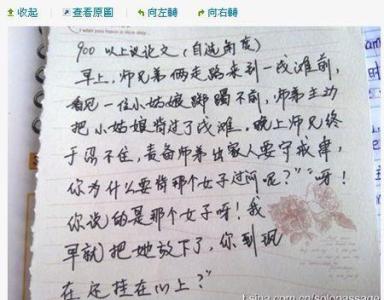 收起 查看原圖 向左轉 向右轉
900 以上议论文（自选角度）
早上，师兄弟俩走路来到一浅滩前，
看见一位小姑娘踯躅不前，师弟主动
把小姑娘背过了浅滩，晚上师兄终
于忍不住，责备师弟出家人要守戒律，
你为什么要背那个女子过河呢？”“呀！
你说的是那个女子呀！我
早就把她放下了，你到现
在还挂在心上？”
t.sina.com.cn/solopassage